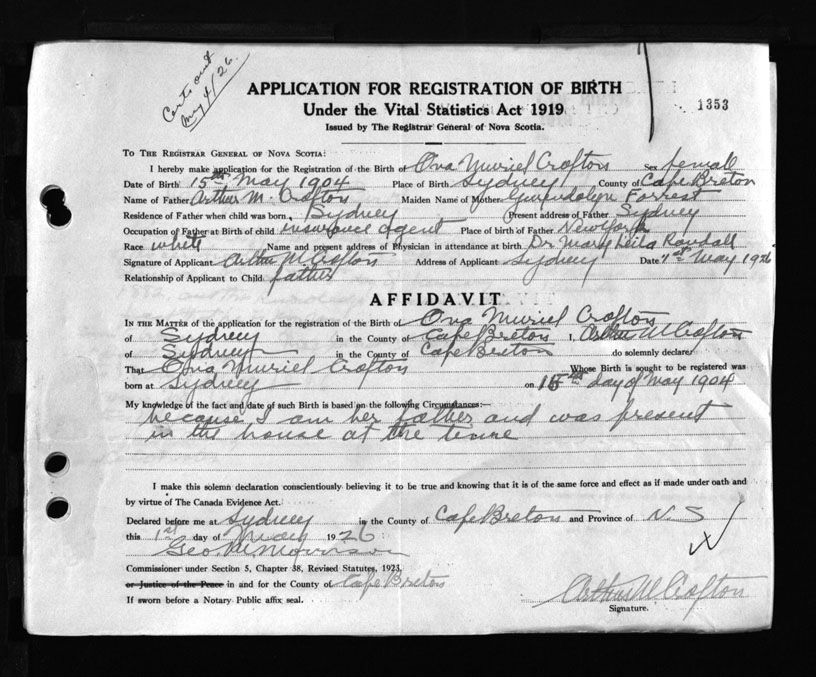 Cert. out
May 4/26.
APPLICATION FOR REGISTRATION OF BIRTH
Under the Vital Statistics Act 1919
1353
Issued by The Registrar General of Nova Scotia.
TO THE REGISTRAR GENERAL OF NOVA SCOTIA:
I hereby make application for the Registration of the Birth of Ona Muriel Crofton Sex female
Date of Birth 15th May 1904 Place of Birth Sydney County of Cape Breton
Name of Father Arthur M. Crofton Maiden Name of Mother Gwendolyn Forrest
Residence of Father when child was born Sydney Present address of Father Sydney
Occupation of Father at Birth of child insurance agent Place of birth of Father New York
Race white Name and present address of Physician in attendance at birth Dr Mary Sheila Randall
Signature of Applicant Arthur M Crofton Address of Applicant Sydney Date 1st May 1926
Relationship of Applicant to Child father
AFFIDAVIT
IN THE MATTER of the application for the registration of the Birth of Ona Muriel Crofton
of Sydney in the County of Cape Breton I, Arthur M Crofton
of Sydney in the County of Cape Breton do solemnly declare
That Ona Muriel Crofton Whose Birth is sought to be registered was
born at Sydney on 15th day of May 1904
My knowledge of the fact and date of such Birth is based on the following Circumstances:—
because I am her father and was present
in the house at the time
I make this solemn declaration conscientiously believing it to be true and knowing that it is of the same force and effect as if made under oath and
by virtue of The Canada Evidence Act.
Declared before me at Sydney in the County of Cape Breton and Province of N. S
this 1st day of May 1926
Geo M Morrison
Commissioner under Section 5, Chapter 38, Revised Statutes, 1923,
or Justice of the Peace in and for the County of Cape Breton
If sworn before a Notary Public affix seal.
Arthur M Crofton
Signature.